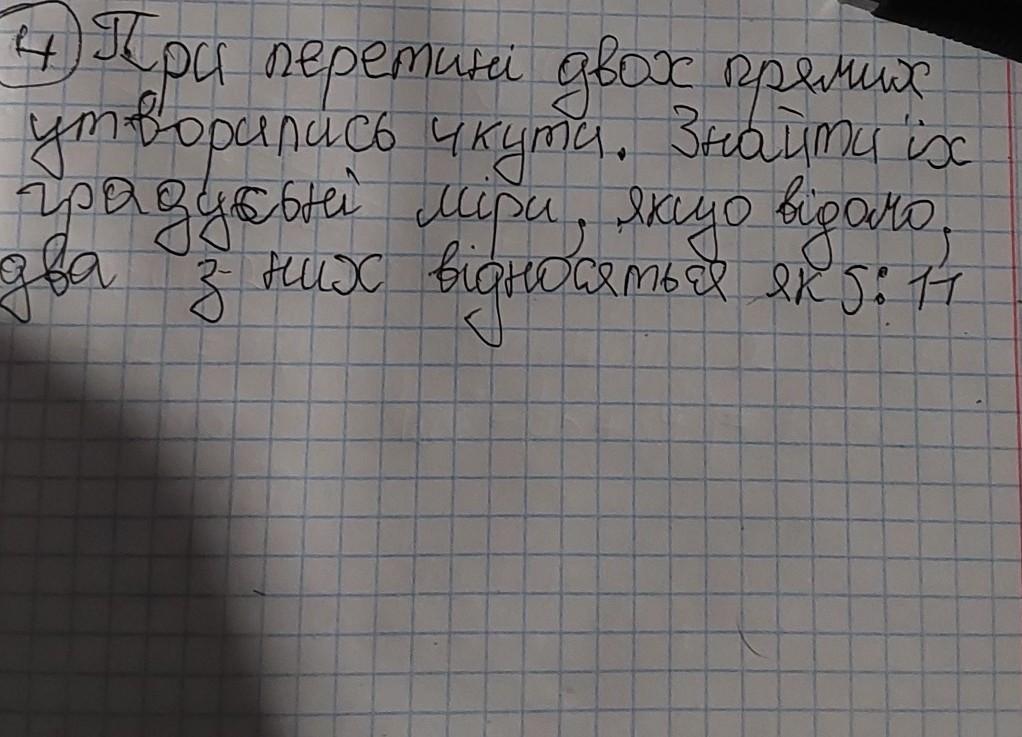 4) При перетині двох прямих
утворились 4 кути. Знайти їх
градусьні міри, якщо відомо,
два з них відносяться як 5:11